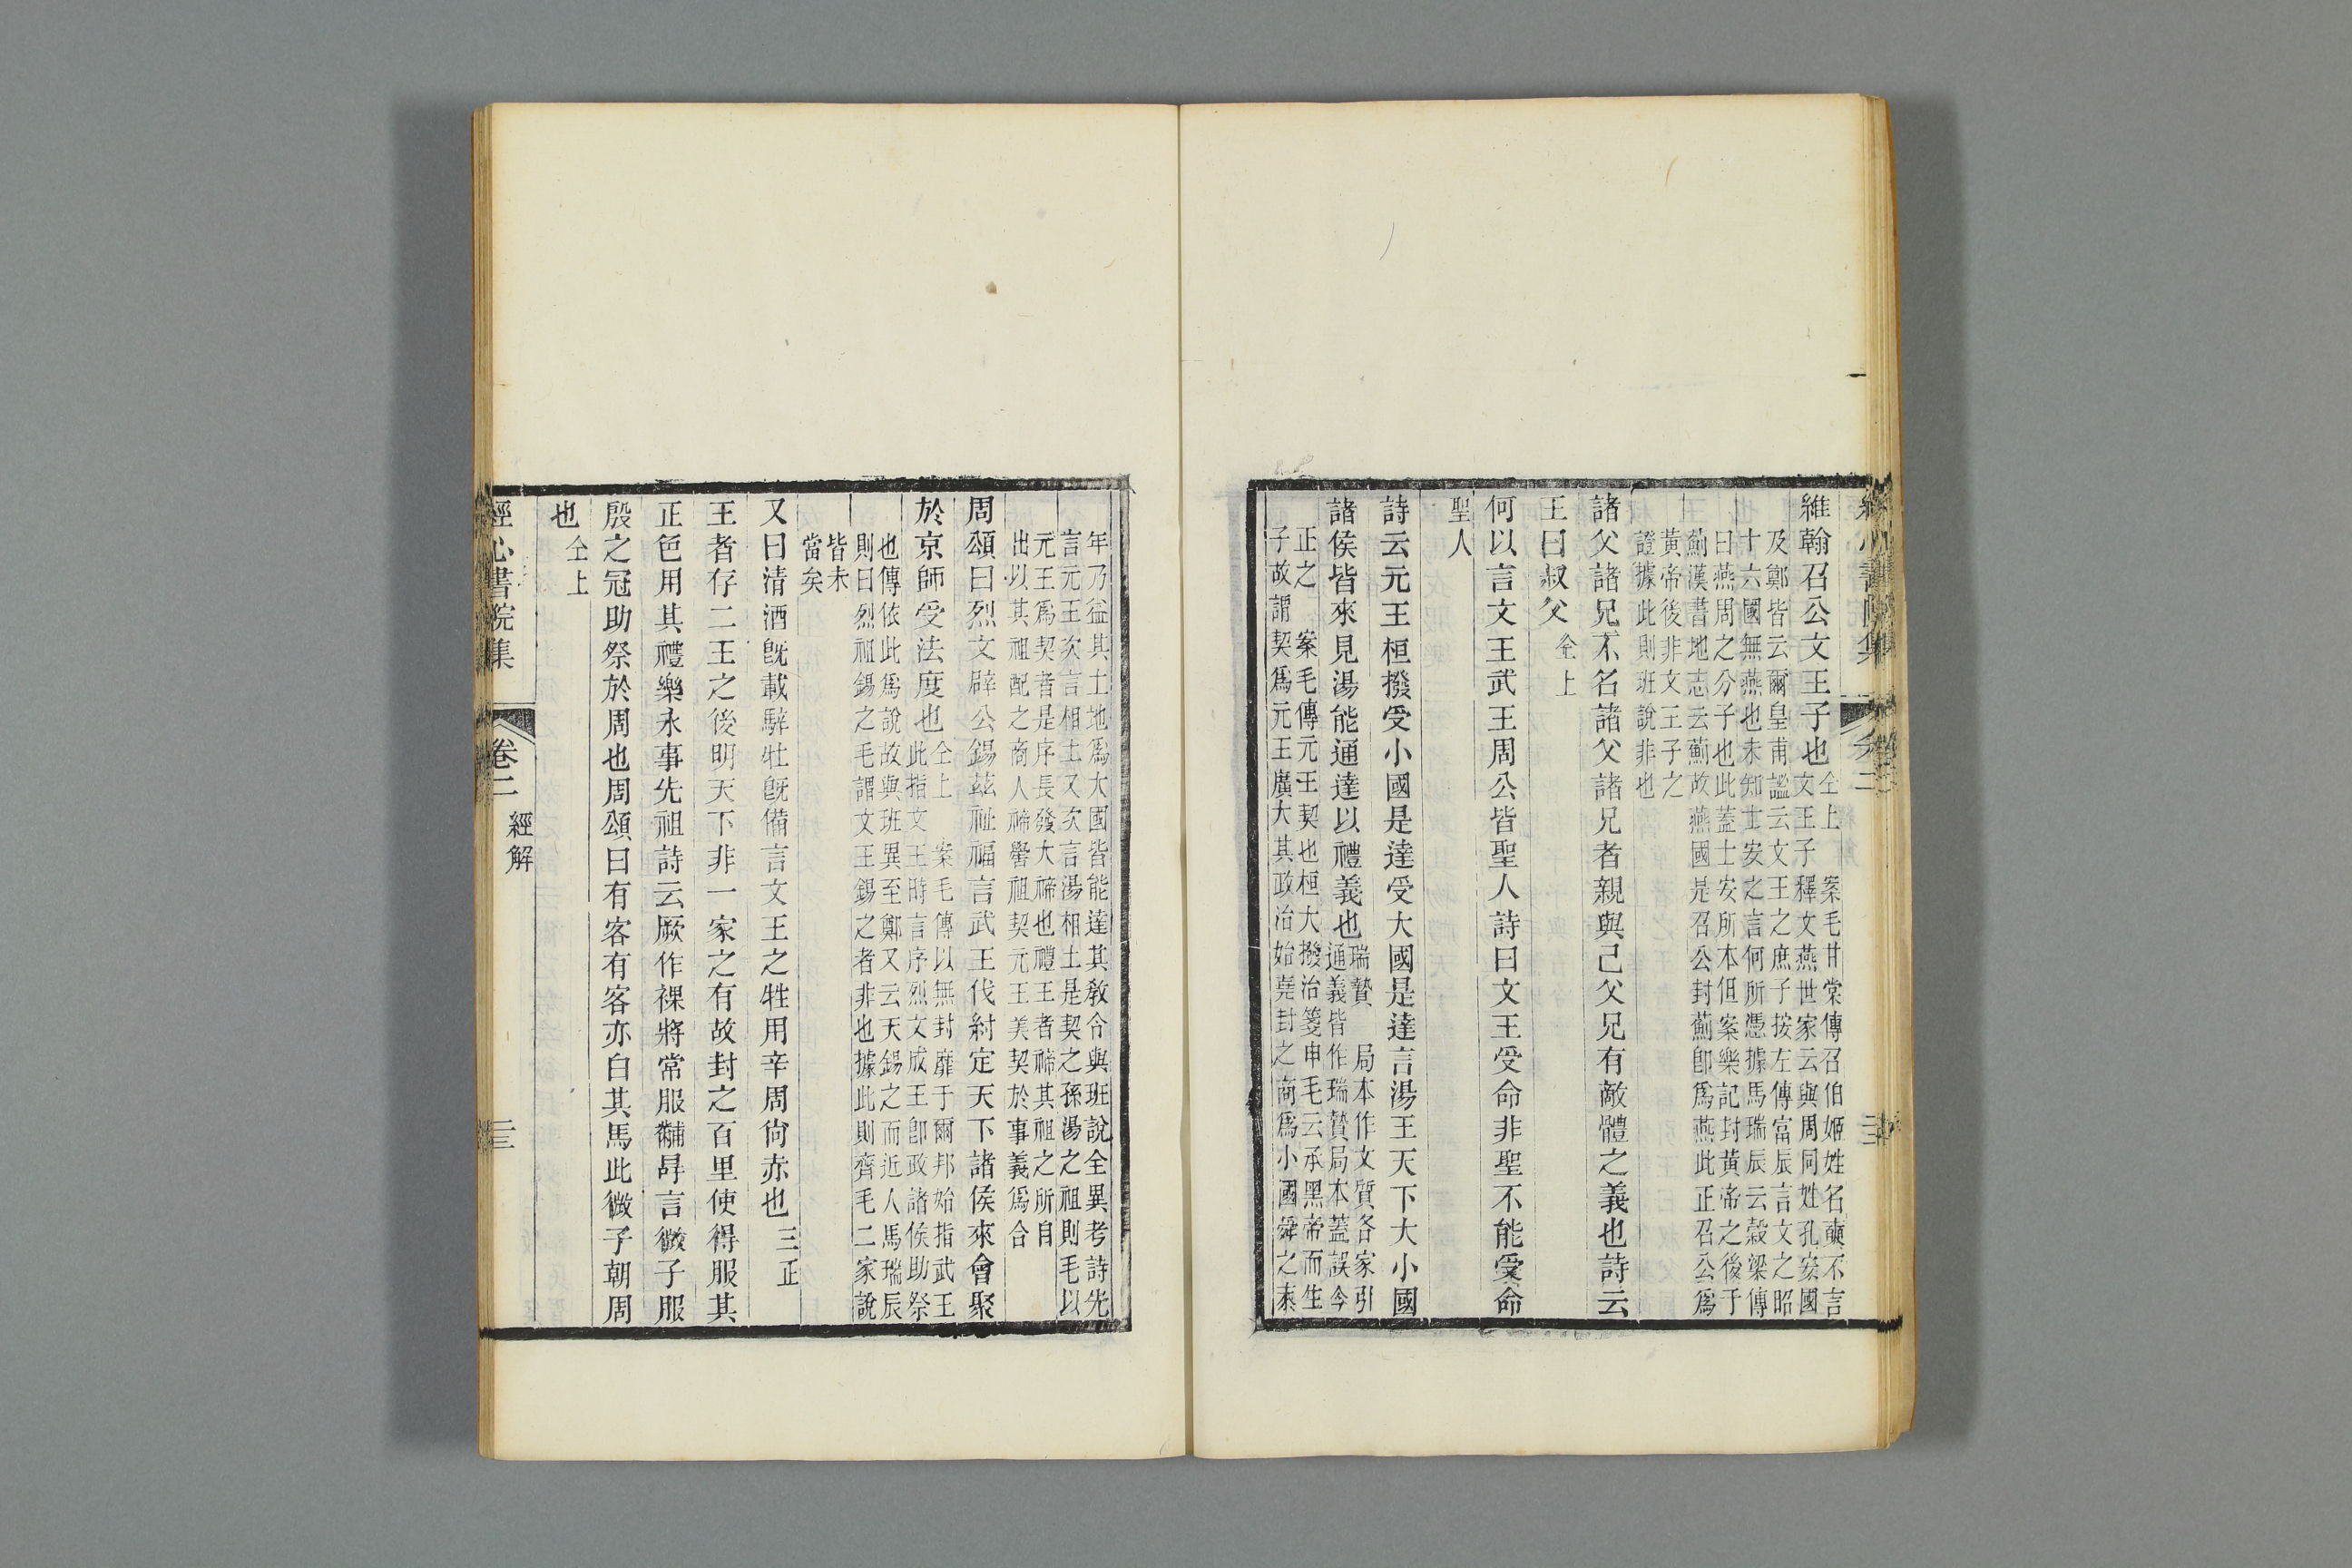 維翰召公文王子也仝上 案毛甘棠傳召伯姬姓名奭不言
文王子釋文燕世家云與周同姓孔安國
及鄭皆云爾皇甫謐云文王之庶子按左傳富辰言文之昭
十六國無燕也未知士安之言何所憑據馬瑞辰云穀梁傳
曰燕周之分子也此蓋士安所本但案樂記封黃帝之後于
薊漢書地志云薊故燕國是召公封薊卽爲燕此正召公爲
黃帝後非文王子之
證據此則班說非也
諸父諸兄不名諸父諸兄者親與己父兄有敵體之義也詩云
王曰叔父仝上
何以言文王武王周公皆聖人詩曰文王受命非聖不能受命
聖人
詩云元王桓撥受小國是達受大國是達言湯王天下大小國
諸侯皆來見湯能通達以禮義也瑞贄 局本作文質各家引
通義皆作瑞贄局本蓋誤今
正之 案毛傳元王契也桓大撥治箋申毛云承黑帝而生
子故謂契爲元王廣大其政治始堯封之商爲小國舜之末
年乃益其土地爲大國皆能達其教令與班說全異考詩先
言元王次言相土又次言湯相土是契之孫湯之祖則毛以
元王爲契者是序長發大禘也禮王者禘其祖之所自
出以其祖配之商人禘嚳祖契元王美契於事義爲合
周頌曰烈文辟公錫茲祉福言武王伐紂定天下諸侯來會聚
於京師受法度也仝上 案毛傳以無封靡于爾邦始指武王
此指文王時言序烈文成王卽政諸侯助祭
也傳依此爲說故與班異至鄭又云天錫之而近人馬瑞辰
則曰烈祖錫之毛謂文王錫之者非也據此則齊毛二家說
皆未
當矣
又曰清酒旣載騂牡旣備言文王之牲用辛周尙赤也三正
王者存二王之後明天下非一家之有故封之百里使得服其
正色用其禮樂永事先祖詩云厥作祼將常服黼冔言微子服
殷之冠助祭於周也周頌曰有客有客亦白其馬此微子朝周
也仝上
經心書院集
卷二
經解